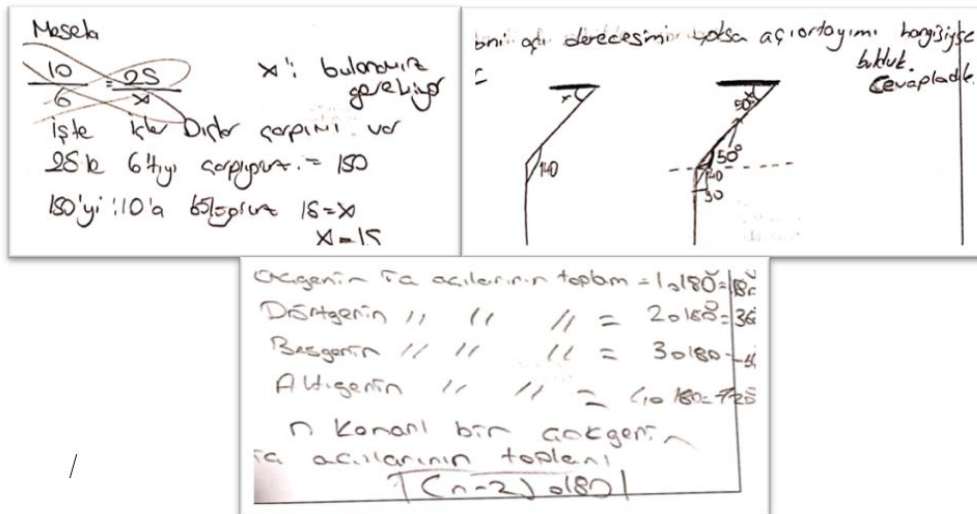 Mesela
10/6 = 25/x
x'i bulmamız
gerekiyor
İşte içler Dışlar çarpımı var
25 le 6'yı çarpıyoruz. = 150
150'yi 10'a bölüyoruz 15=x
x=15
açı derecesimi yoksa açıortayımı hangisiyse
bulduk.
Cevapladık.
x
140
50°
x
50°
90
Üçgenin iç açılarının toplam = 1.180
Dörtgenin // // // = 2.180 = 36
Beşgenin // // // = 3.180
Altıgenin // // = 4.180=720
n Kenarlı bir çokgenin
iç açılarının toplamı
(n-2).180
/